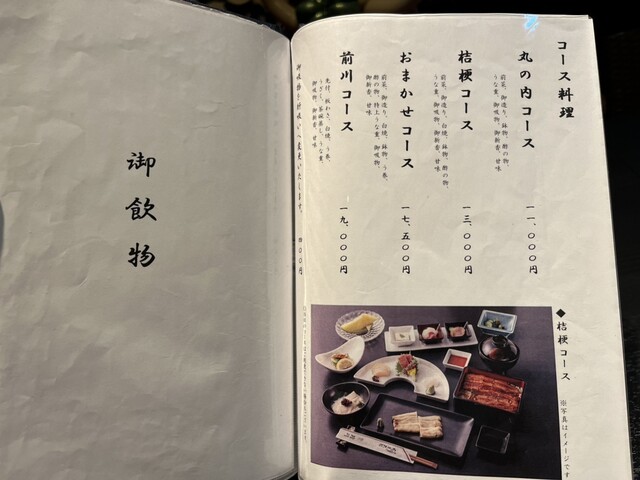 コース料理
丸の内コース
前菜、御造り、鉢物、酢の物、
うな重、御吸物、御新香、甘味
一一、〇〇〇円
桔梗コース
前菜、御造り、白焼、鉢物、酢の物、
うな重、御吸物、御新香、甘味
一三、〇〇〇円
おまかせコース
前菜、御造り、白焼、鉢物、う巻、
酢の物、特上うな重、御吸物、
御新香、甘味
一七、五〇〇円
前川コース
先付、板わさ、白焼、う巻、
うざく、茶碗蒸し、うな重、
御吸物、御新香、甘味
一九、〇〇〇円
御吸物を肝吸いへ変更いたします。
四〇〇円
◆桔梗コース
※写真はイメージです
御飲物